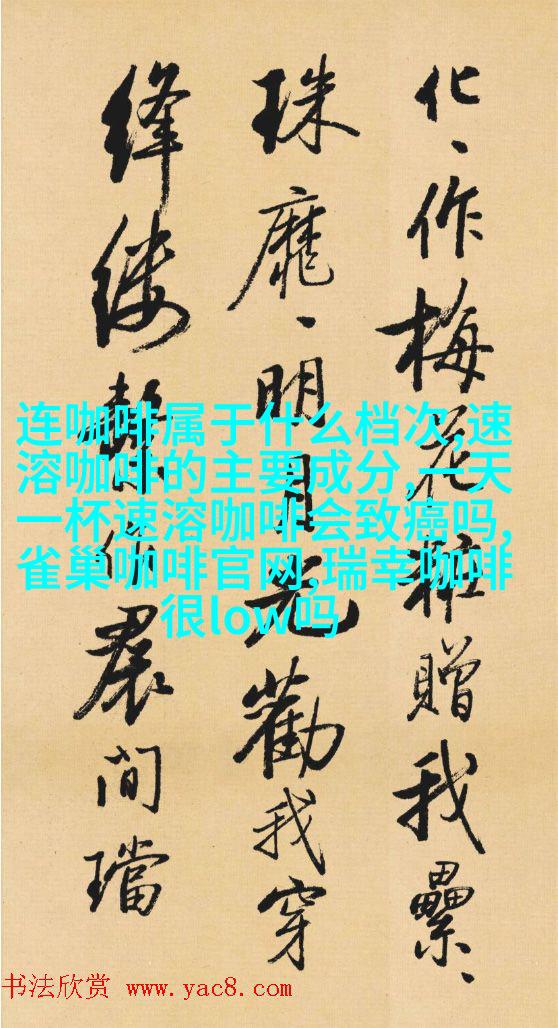 化、作梅花粧贈我纍、
珠靡、明月光勸我穿
絳縷繫作裠間璫
连咖啡属于什么档次,速
溶咖啡的主要成分,一天
一杯速溶咖啡会致癌吗,
雀巢咖啡官网,瑞幸咖啡
很low吗
书法欣赏 www.yac8.com